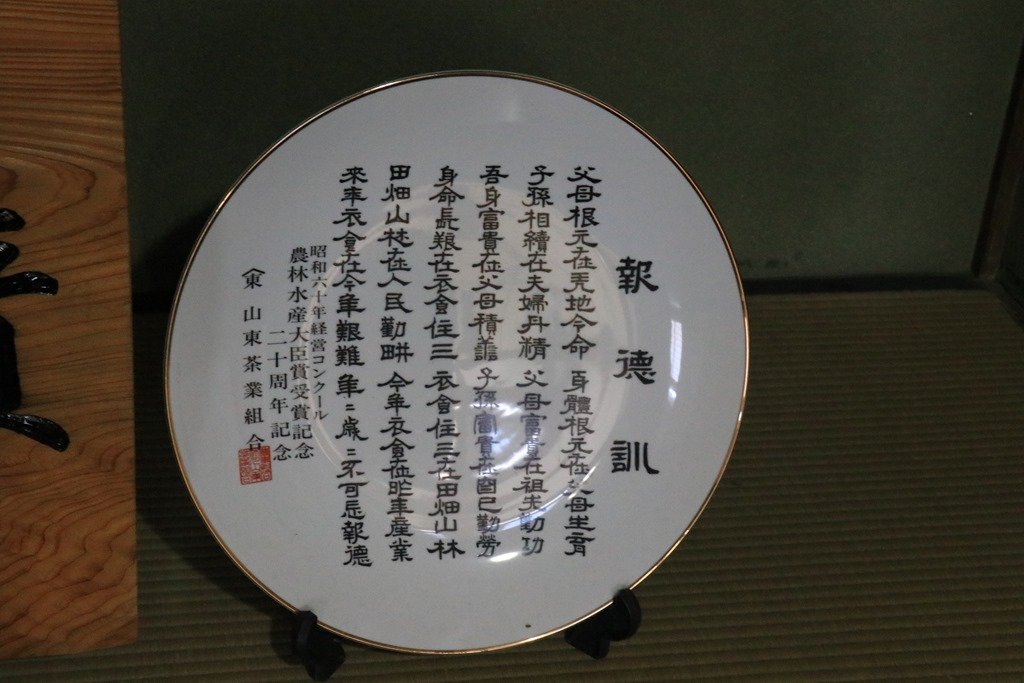 報德訓
父母根元在天地令命 身體根元在父母生育
子孫相續在夫婦丹精 父母富貴在祖先勤功
吾身富貴在父母積善 子孫富貴在自己勤勞
身命長養在衣食住三 衣食住三在田畑山林
田畑山林在人民勤耕 今年衣食在昨年産業
來年衣食在今年艱難 年〻歳〻不可忘報德
昭和六十年経営コンクール
農林水産大臣賞受賞記念
二十周年記念
東山東茶業組合